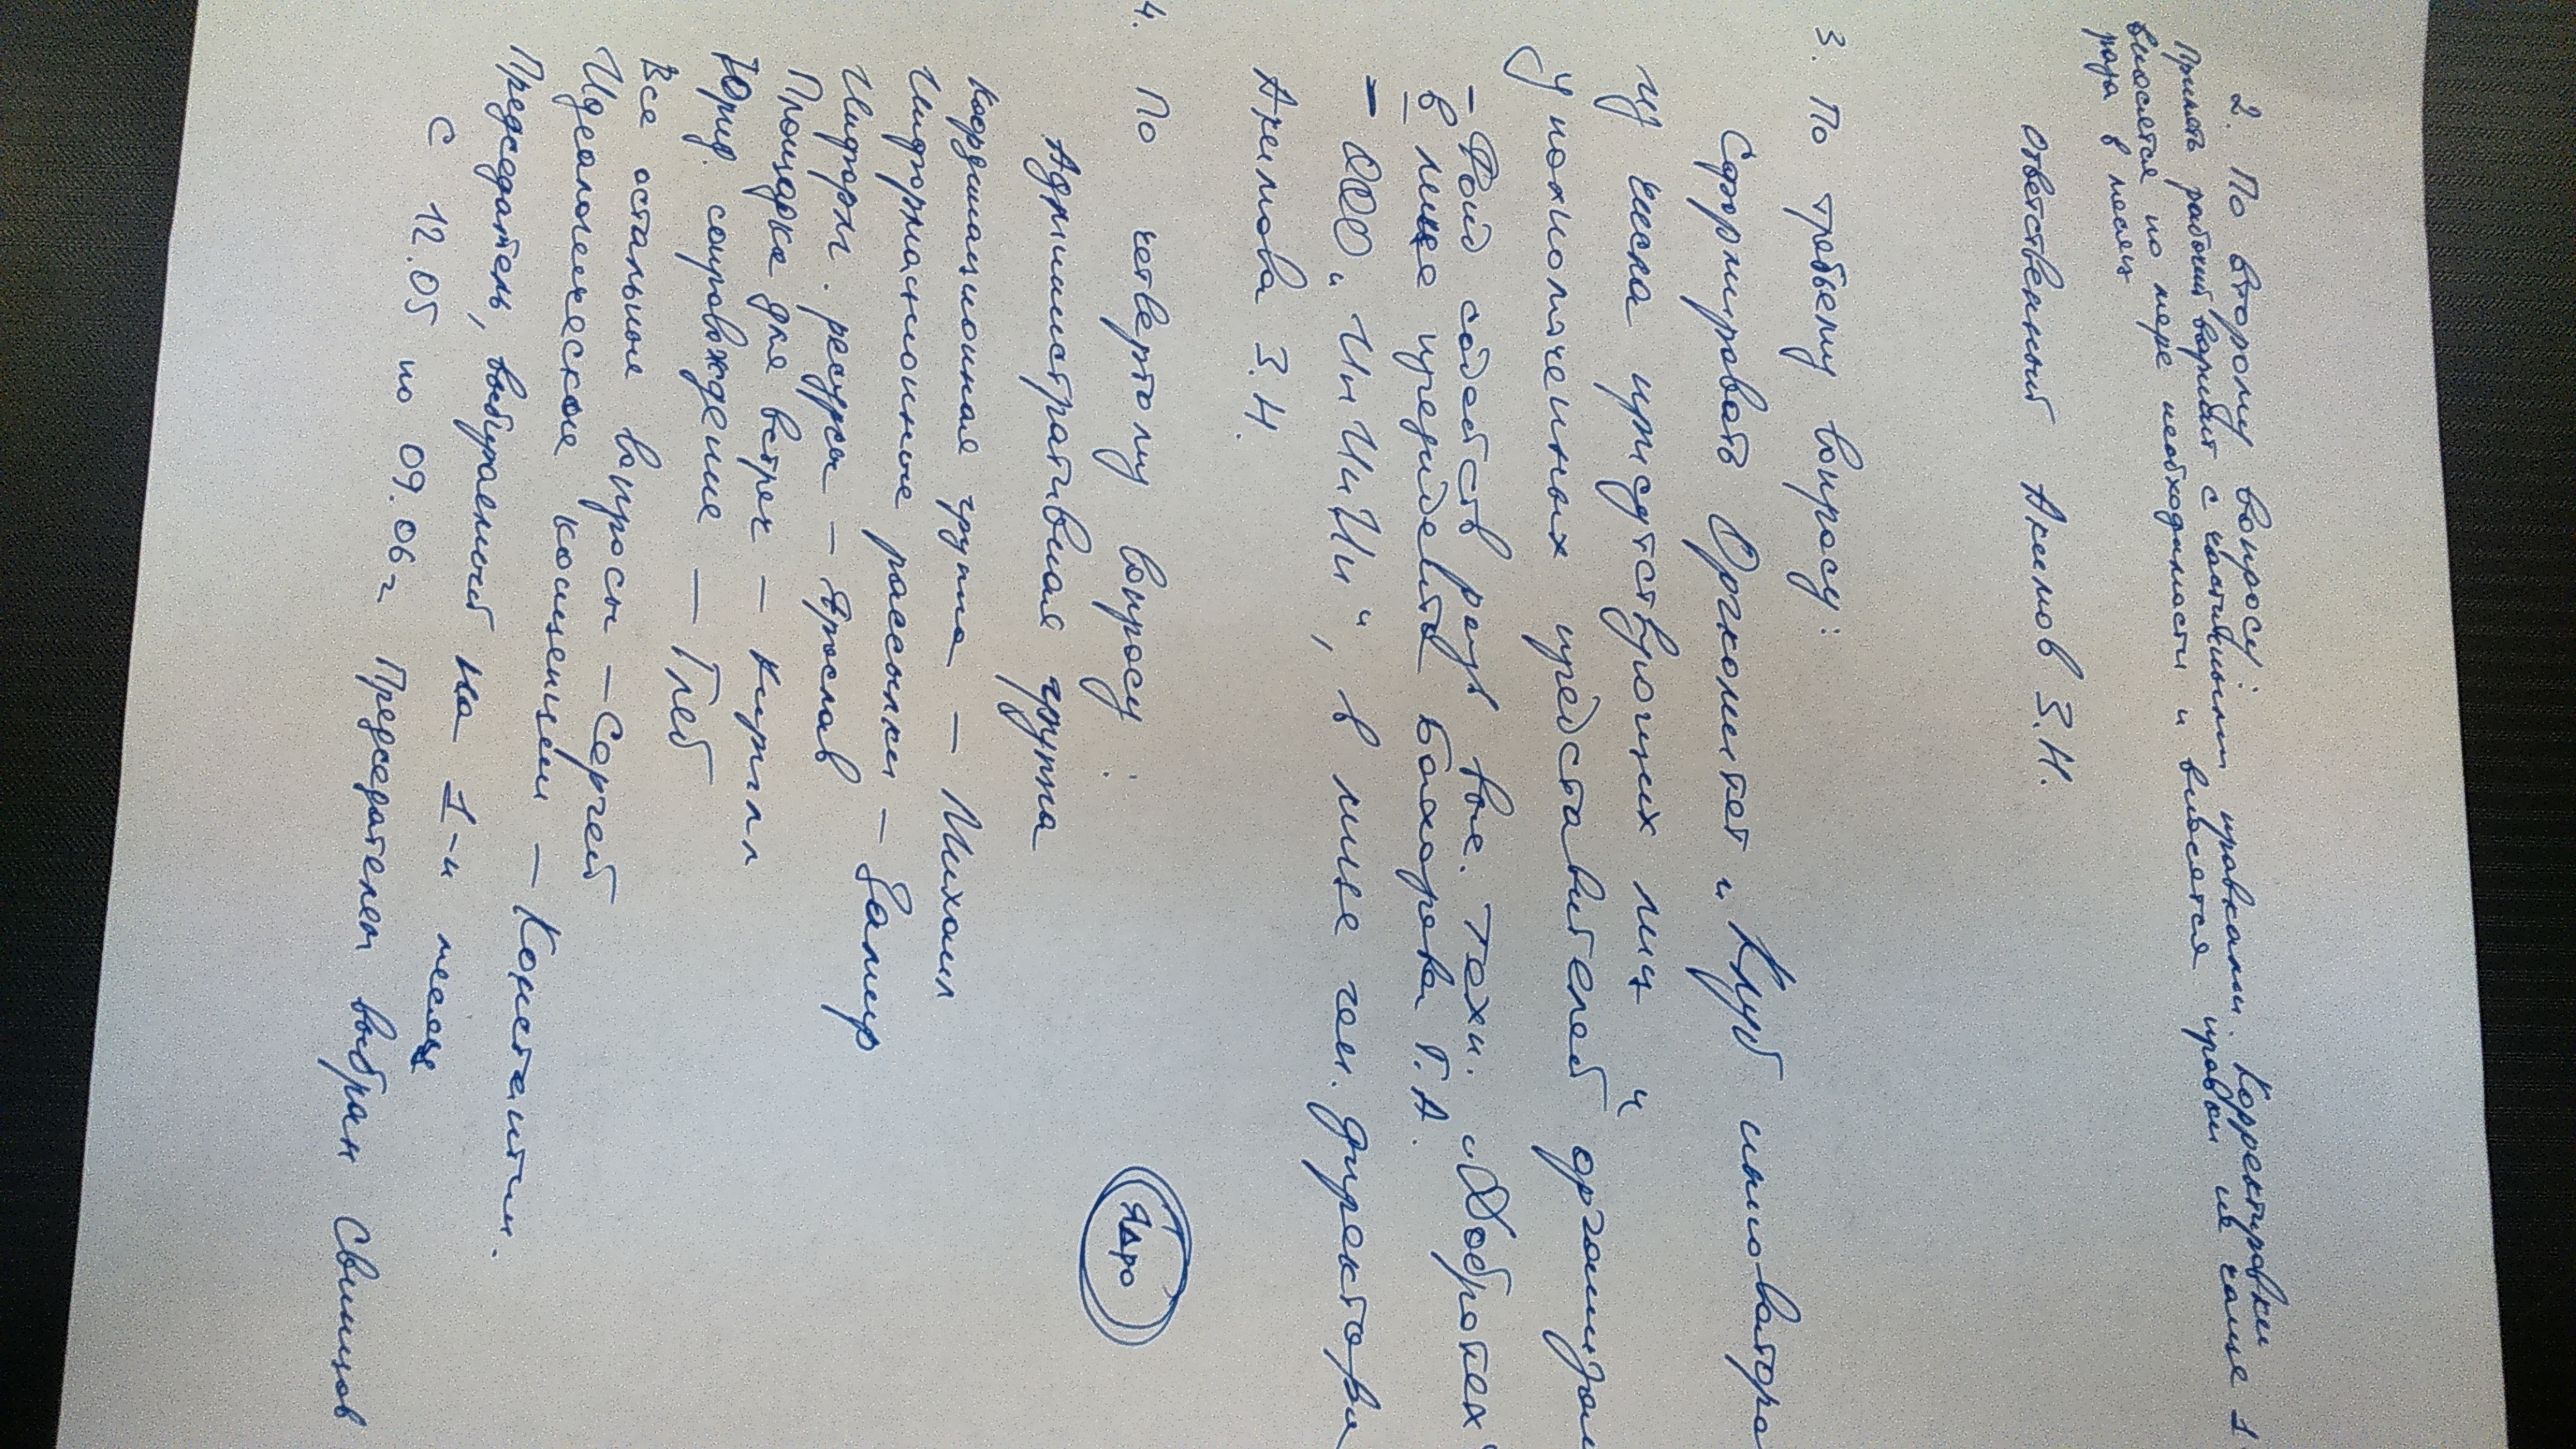 2. По второму вопросу:
Принять рабочий вариант с контивными правками. Корректировки
вносятся по мере необходимости и вносятся правки не чаще 1-
раза в месяц
Ответственный Акимов З.Н.
3. По третьему вопросу:
Сформировать Оргкомитет и Клуб инноватора
из числа присутствующих лиц и
уполномоченных представителей организац
- Фонд содейств разв. выс. техн. "Добротех"
в лице учредителя Бахарева Г.А.
- ООО "ИнИнИн", в лице ген. директора
Акимова З.Н.
4. По четвертому вопросу:
Административная группа
Ядро
Координационная группа - Михаил
Информационные рассылки - Замир
Информ. ресурсы - Ярослав
Площадка для встреч - Кирилл
Юрид. сопровождение - Глеб
Все остальные вопросы - Сергей
Идеологическая концепция - Константин.
Председатель, выбираемый на 1-н месяц
С 12.05 по 09.06г Председателем выбран Свинцов